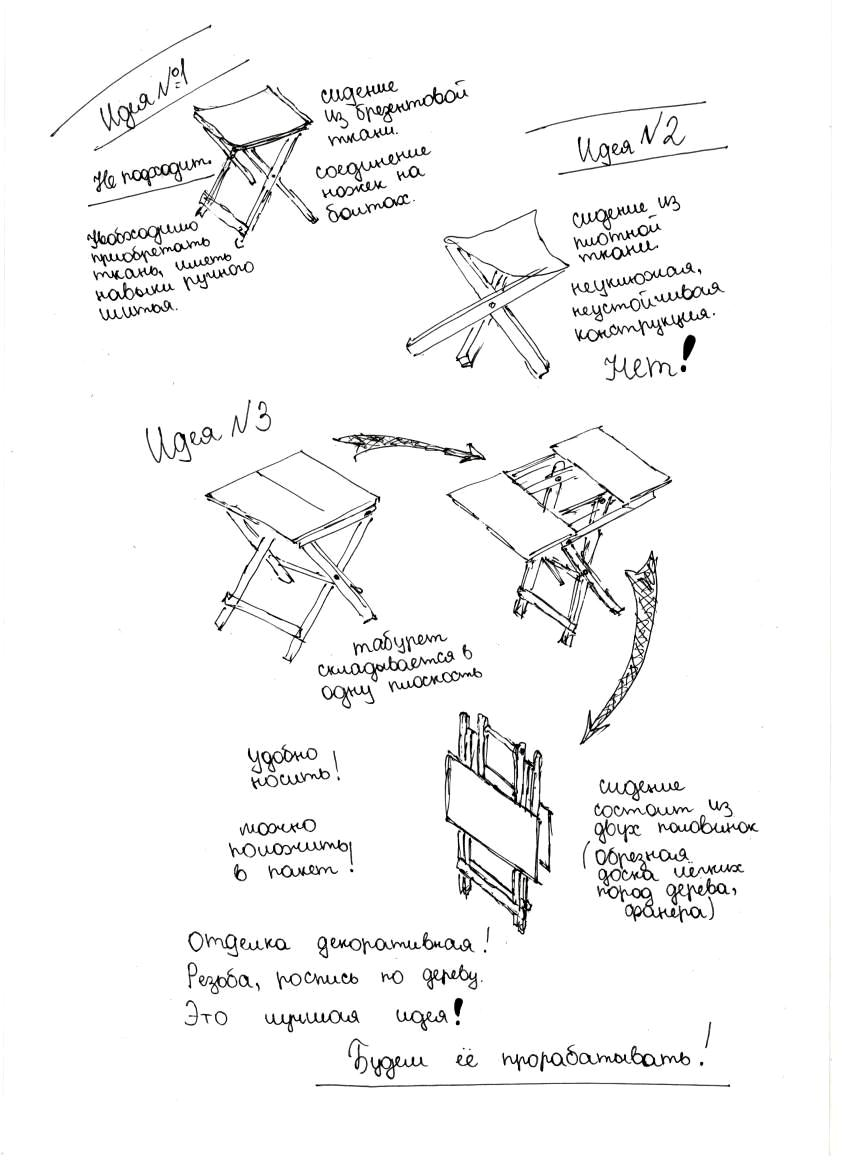 Идея №1
сидение
из брезентовой
ткани.
Не подходит.
соединение
ножек на
болтах.
Необходимо
приобретать
ткань, иметь
навыки ручного
шитья.
Идея N2
сидение из
плотной
ткани.
неуклюжая,
неустойчивая
конструкция.
Нет!
Идея N3
табурет
складывается в
одну плоскость
удобно
носить!
можно
положить
в пакет!
сидение
состоит из
двух половинок
(обрезная
доска лёгких
пород дерева,
фанера)
Отделка декоративная!
Резьба, роспись по дереву.
Это лучшая идея!
Будем её прорабатывать!